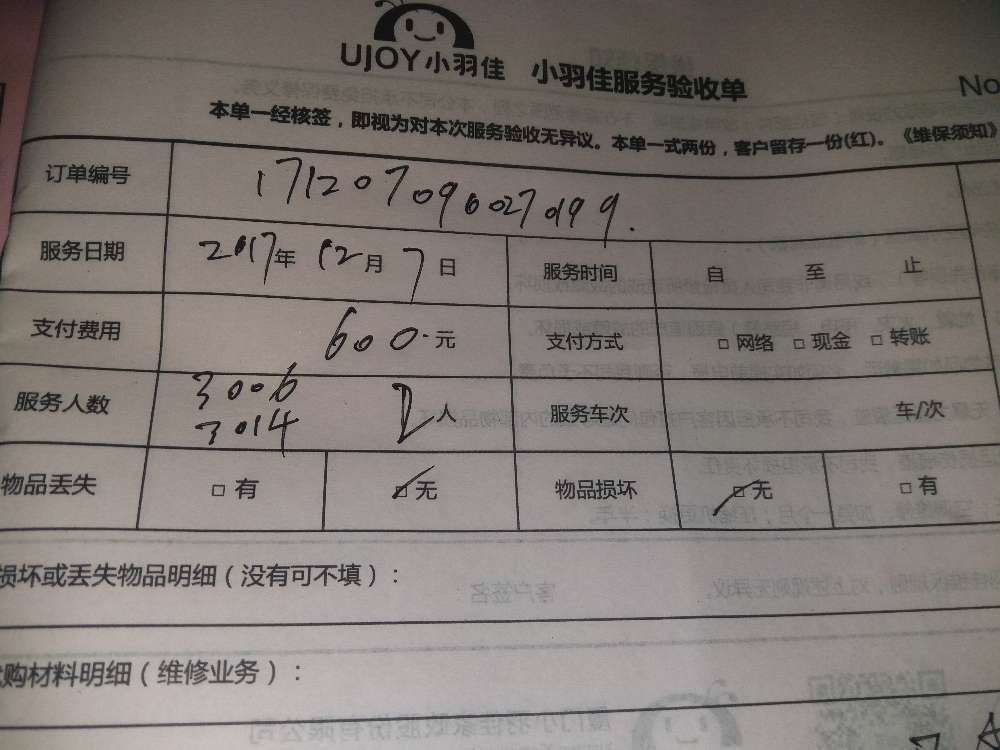 UJOY小羽佳 小羽佳服务验收单
No
本单一经核签，即视为对本次服务验收无异议。本单一式两份，客户留存一份(红)。《维保须知》
订单编号 171207090027099.
服务日期 2017年 12月 7日 服务时间 自 至 止
支付费用 600.元 支付方式 □网络 □现金 □转账
服务人数 3006 3014 人 服务车次 车/次
物品丢失 □有 □无 物品损坏 □无 □有
损坏或丢失物品明细（没有可不填）：
购材料明细（维修业务）：